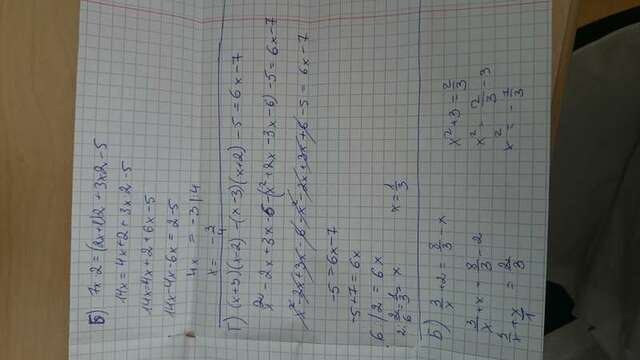 б) 7x2 = (2x+1)2 + 3x2 - 5
14x = 4x+2 + 3x2 - 5
14x-4x+2+6x-5
14x-4x-6x = 2-5
4x = -3 | 4
x = -3/4
Г) (x+3)(x-2) - (x-3)(x+2) - 5 = 6x-7
x²-2x+3x-6-x²-2x+3x+6-5 = 6x-7
-5 = 6x-7
-5+7 = 6x
6 | 2 = 6x
2/6 = 1/3 = x
x = 1/3
б) 3/x + 2 = 8/3 - x
3/x + x = 8/3 - 2
3/x + x/1 = 2/3
x²+3 = 2/3
x² = 2/3 - 3
x² = -7/3